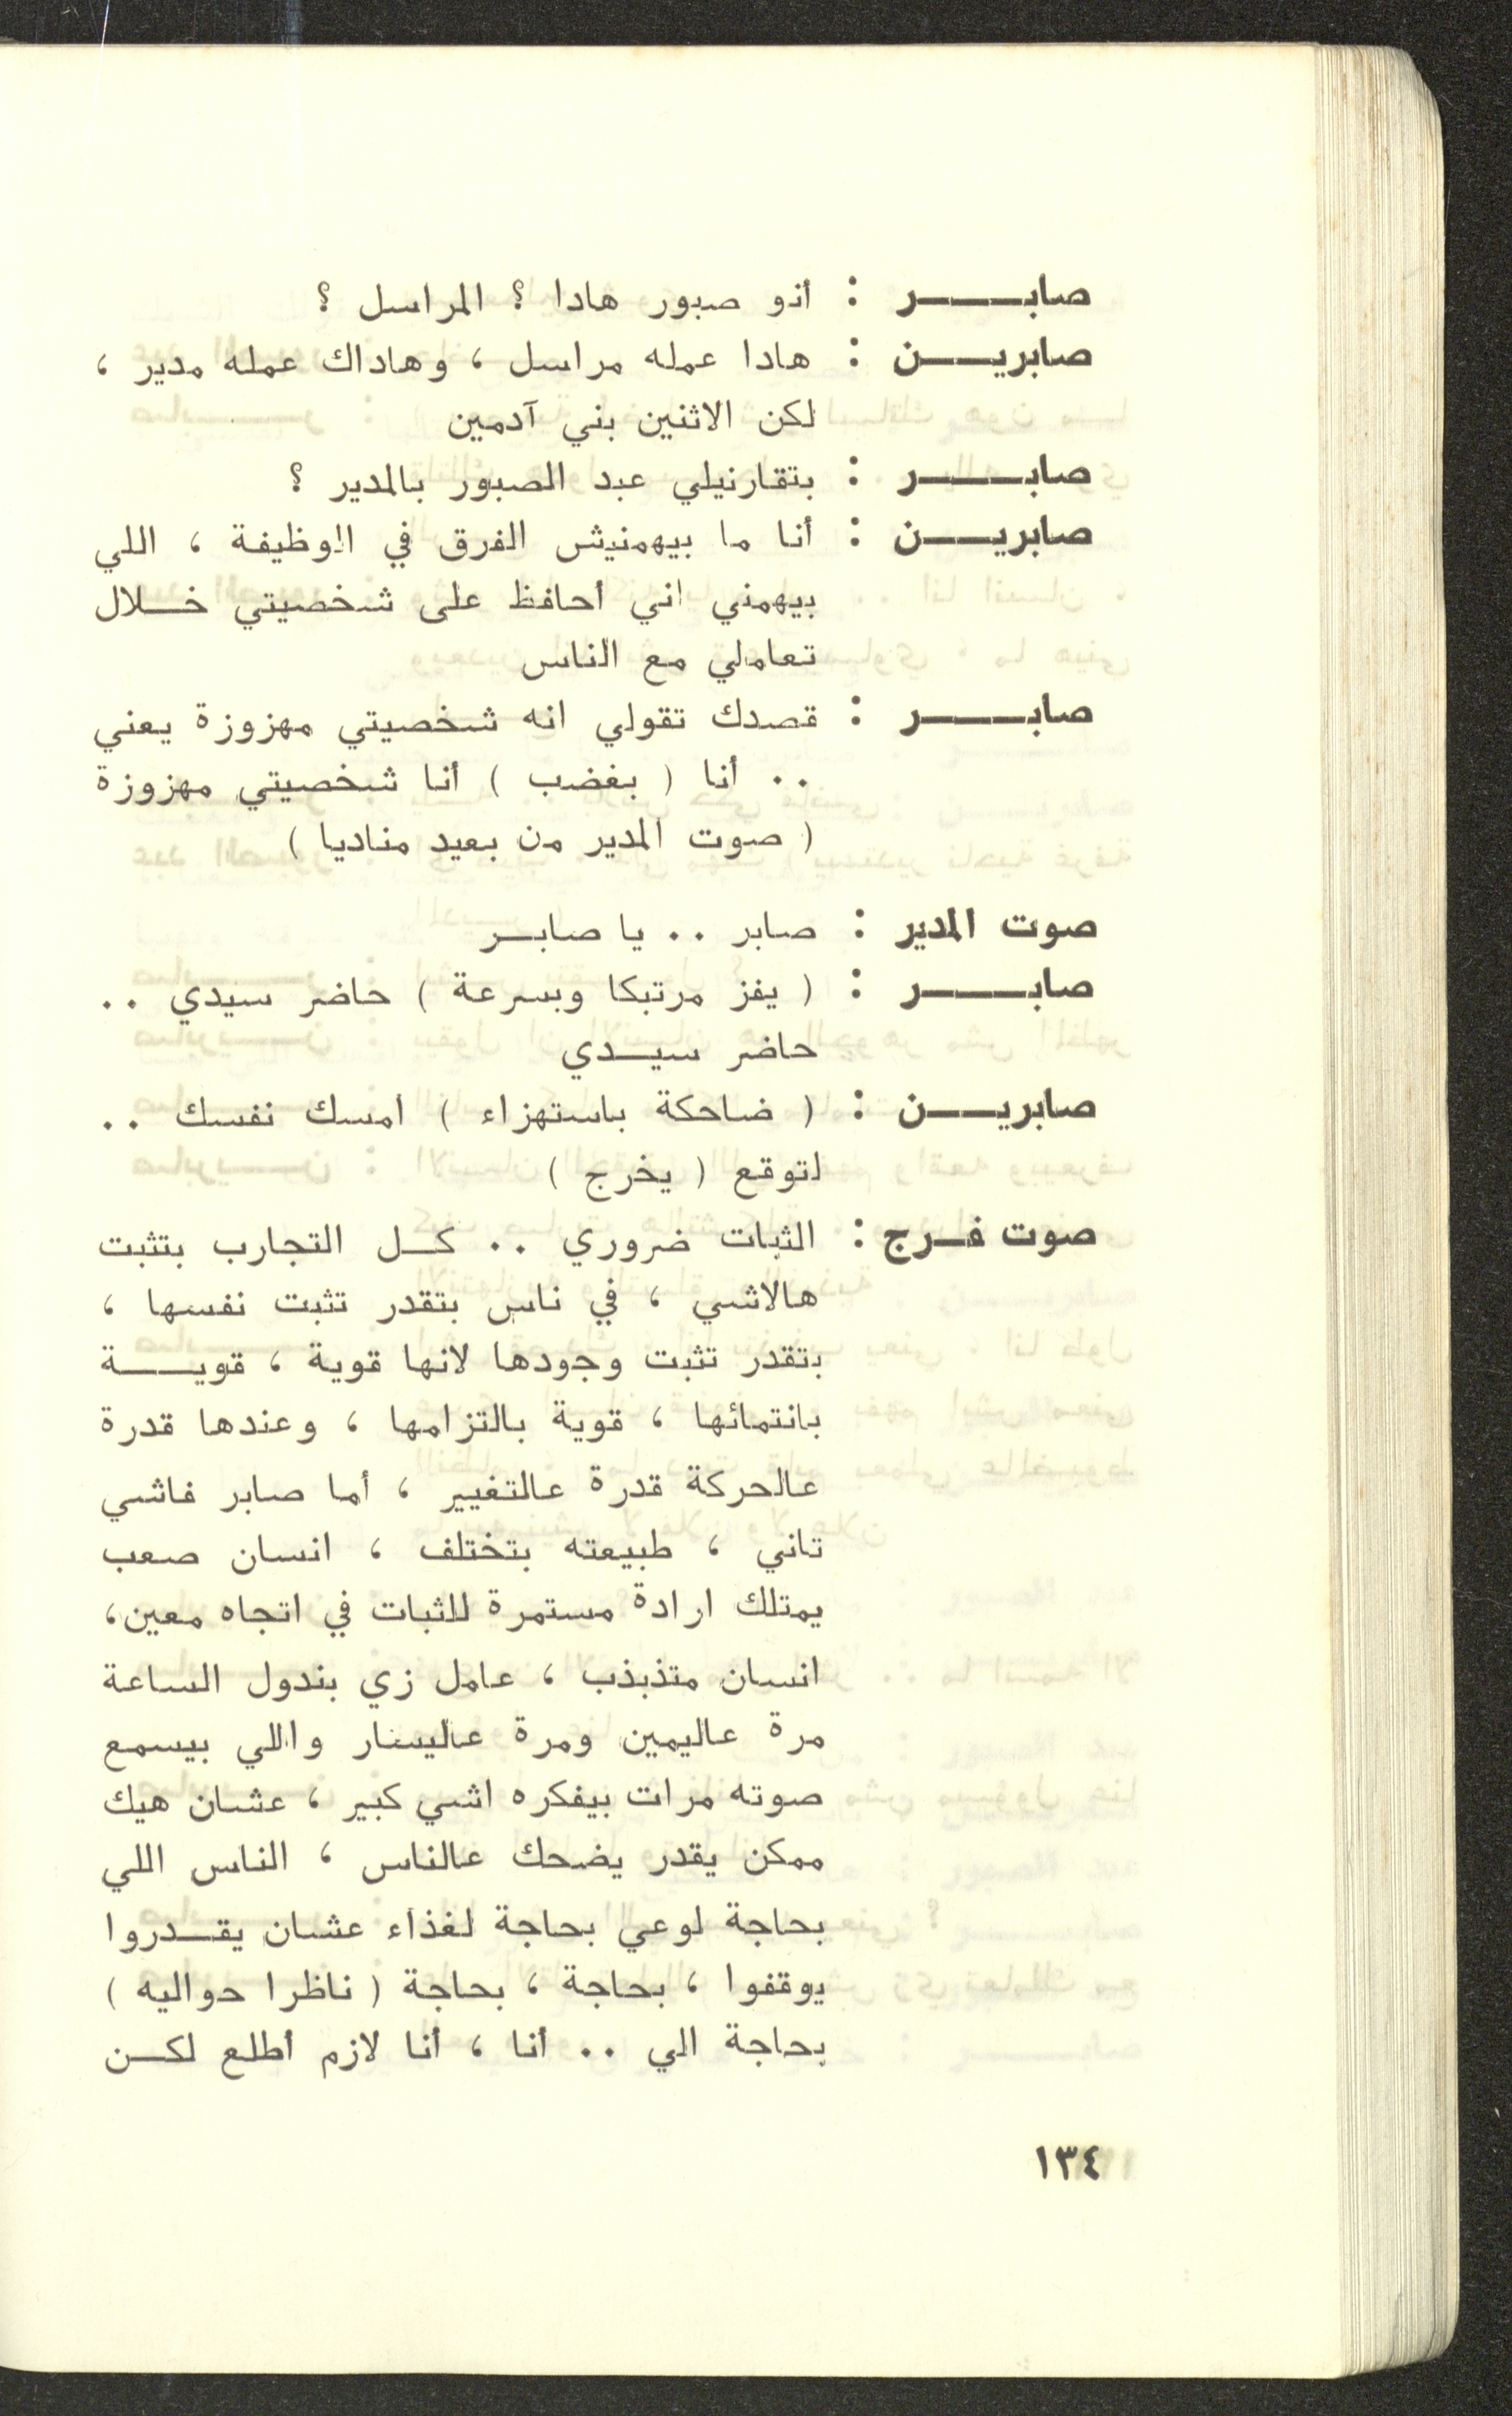 صابـــــر : أنو صبور هادا ؟ المراسل ؟
صابريـــن : هادا عمله مراسل ، وهاداك عمله مدير ،
لكن الاثنين بني آدمين
صابـــــر : بتقارنيلي عبد الصبور بالمدير ؟
صابريـــن : أنا ما بيهمنيش الفرق في الوظيفة ، اللي
بيهمني اني أحافظ على شخصيتي خـــلال
تعاملي مع الناس
صابـــــر : قصدك تقولي انه شخصيتي مهزوزة يعني
.. أنا ( بغضب ) أنا شخصيتي مهزوزة
( صوت المدير من بعيد مناديا )
صوت المدير : صابر .. يا صابـــر
صابـــــر : ( يفز مرتبكا وبسرعة ) حاضر سيدي ..
حاضر سيـــدي
صابريـــن : ( ضاحكة باستهزاء ) امسك نفسك ..
لتوقع ( يخرج )
صوت فـــرج : الثبات ضروري .. كـــل التجارب بتثبت
هالاشي ، في ناس بتقدر تثبت نفسها ،
بتقدر تثبت وجودها لانها قوية ، قويـــة
بانتمائها ، قوية بالتزامها ، وعندها قدرة
عالحركة قدرة عالتغيير ، أما صابر فاشي
تاني ، طبيعته بتختلف ، انسان صعب
يمتلك ارادة مستمرة للثبات في اتجاه معين،
انسان متذبذب ، عامل زي بندول الساعة
مرة عاليمين ومرة عاليسار واللي بيسمع
صوته مرات بيفكره اشي كبير ، عشان هيك
ممكن يقدر يضحك عالناس ، الناس اللي
بحاجة لوعي بحاجة لغذاء عشان يقـــدروا
يوقفوا ، بحاجة ، بحاجة ( ناظرا حواليه )
بحاجة الي .. أنا ، أنا لازم أطلع لكـــن
١٣٤